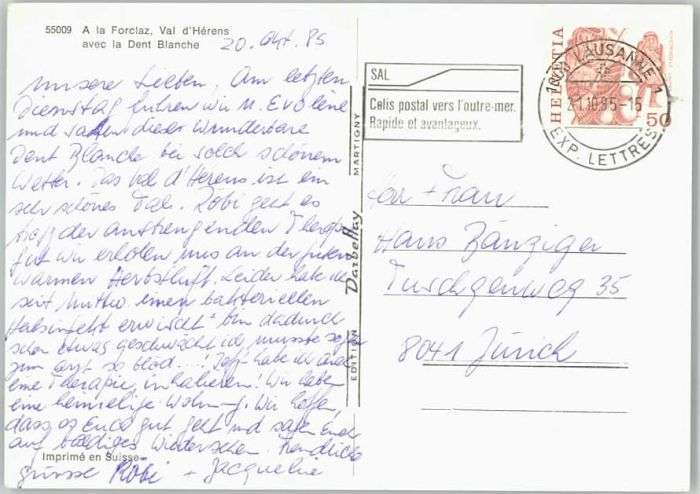 55009 A la Forclaz, Val d'Hérens
avec la Dent Blanche
20. Okt. 85
Unsere Lieben, Am letzten
Dienstag fuhren wir n. Evolène
und sahen dieses wunderbare
Dent Blanche bei solch schönem
Wetter. Das Val d'Hérens ist ein
sehr schönes Tal. Robi geht es
trotz der anstrengenden Therapie
gut wir erholen uns an der guten
warmen Herbstluft. Leider habe ich
seit Mittw. einen bakteriellen
Halsinfekt erwischt bin dadurch
schon etwas geschwächt ich musste sogar
zum Arzt so blöd...! Jetzt habe ich auch
eine Therapie, inhalieren! Wir haben
eine heimelige Wohn-g. Wir hoffen,
dass es Euch gut geht und sagen Euch
auf baldiges Wiedersehen. Freundliche
Grüsse Robi + Jacqueline
Imprimé en Suisse
EDITION Darbellay MARTIGNY
SAL
Colis postal vers l'outre-mer.
Rapide et avantageux.
1000 LAUSANNE 1
21.10.85-15
EXP. LETTRES
HELVETIA
50
Frau
Hans Zänziger
Tuschgenweg 35
8041 Zürich